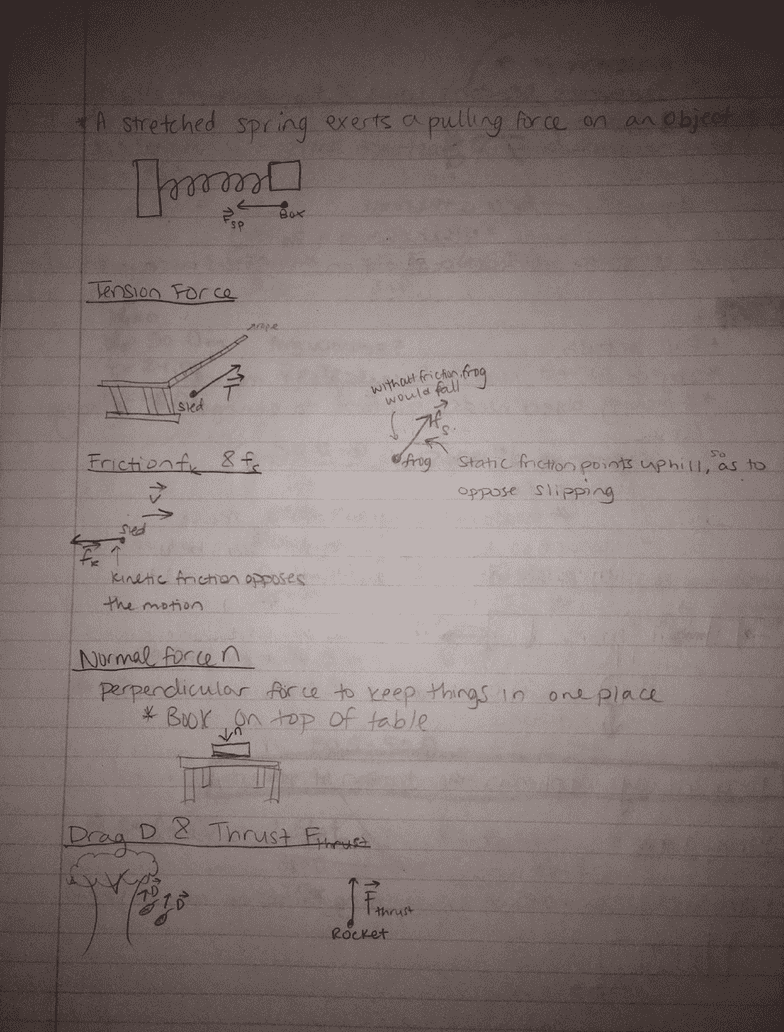 * A stretched spring exerts a pulling force on an object
F sp
Box
Tension Force
rope
sled
T
without friction, frog
would fall
fs
frog
static friction points uphill, so as to
oppose slipping
Friction fk & fs
v
sled
fk
kinetic friction opposes
the motion
Normal force n
perpendicular force to keep things in one place
* Book on top of table
n
Drag D & Thrust Fthrust
D
D
F thrust
Rocket